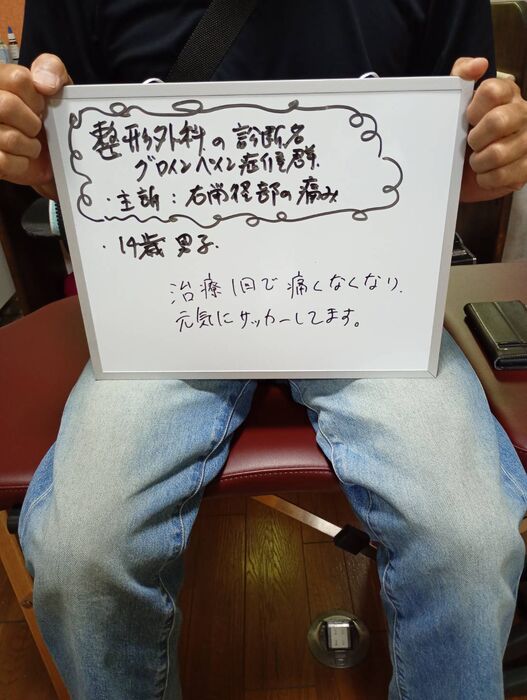 整形外科の診断名
グロインペイン症候群
・主訴：右鼡径部の痛み
・14歳 男子.
治療1回で痛くなくなり、
元気にサッカーしてます。